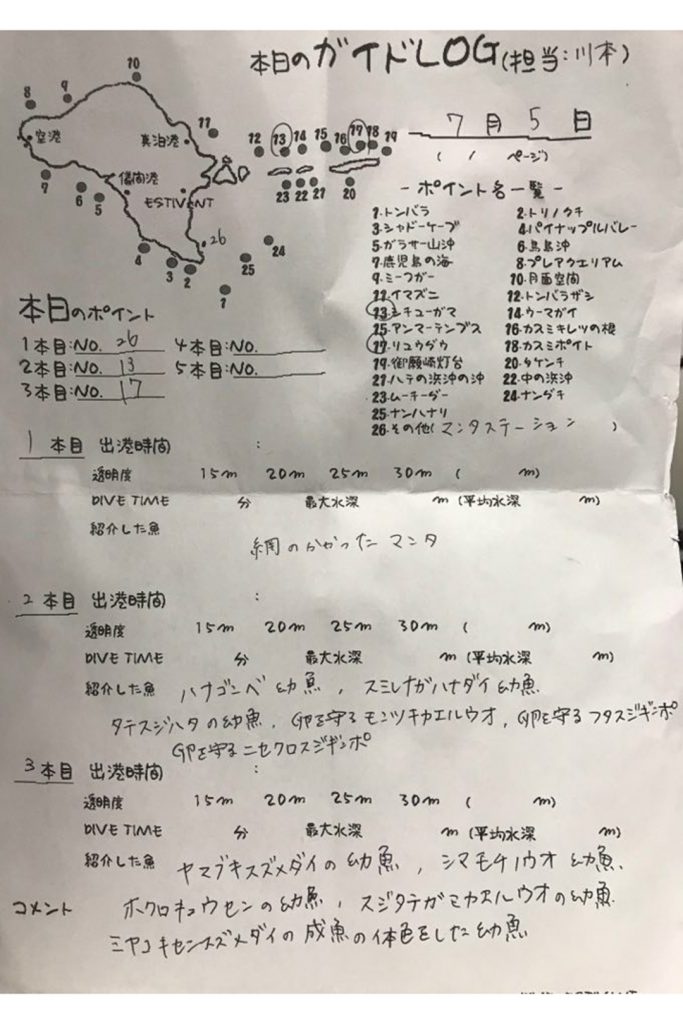 本日のガイドLOG(担当:川本)
7月5日
( / ページ)
10
9
8
空港
真泊港
11
12 13 14 15 16 17 18 19
儀間港
7
6
5
ESTIVENT
23 22 21
20
26
24
4
3
2
25
1
- ポイント名一覧 -
1.トンバラ 2.トリノクチ
3.シャドーケーブ 4.パイナップルバレー
5.ガラサー山沖 6.鳥島沖
7.鹿児島の海 8.プレアクエリアム
9.ミーフガー 10.月面空間
11.イマズニ 12.トンバラザシ
13.シチューガマ 14.ウーマガイ
15.アンマーテンプス 16.カスミキレツの根
17.リュウダウ 18.カスミポイント
19.御願崎灯台 20.タケンチ
21.ハテの浜沖の沖 22.中の浜沖
23.ムーチーダー 24.ナンダチ
25.ナンハナリ
26.その他(マンタステーション )
本日のポイント
1本目:NO. 26 4本目:NO.
2本目:NO. 13 5本目:NO.
3本目:NO. 17
1本目 出港時間 :
透明度 15m 20m 25m 30m ( m)
DIVE TIME 分 最大水深 m (平均水深 m)
紹介した魚
網のかかったマンタ
2本目 出港時間 :
透明度 15m 20m 25m 30m ( m)
DIVE TIME 分 最大水深 m (平均水深 m)
紹介した魚 ハナゴンベ幼魚, スミレナガハナダイ幼魚.
タテスジハタの幼魚, 卵を守るモンツキカエルウオ, 卵を守るフタスジギンポ
卵を守るニセクロスジギンポ
3本目 出港時間 :
透明度 15m 20m 25m 30m ( m)
DIVE TIME 分 最大水深 m (平均水深 m)
紹介した魚 ヤマブキスズメダイの幼魚, シマモチノウオ幼魚.
コメント ホクロキュウセンの幼魚, スジタテガミカエルウオの幼魚.
ミヤコキセンスズメダイの成魚の体色をした幼魚